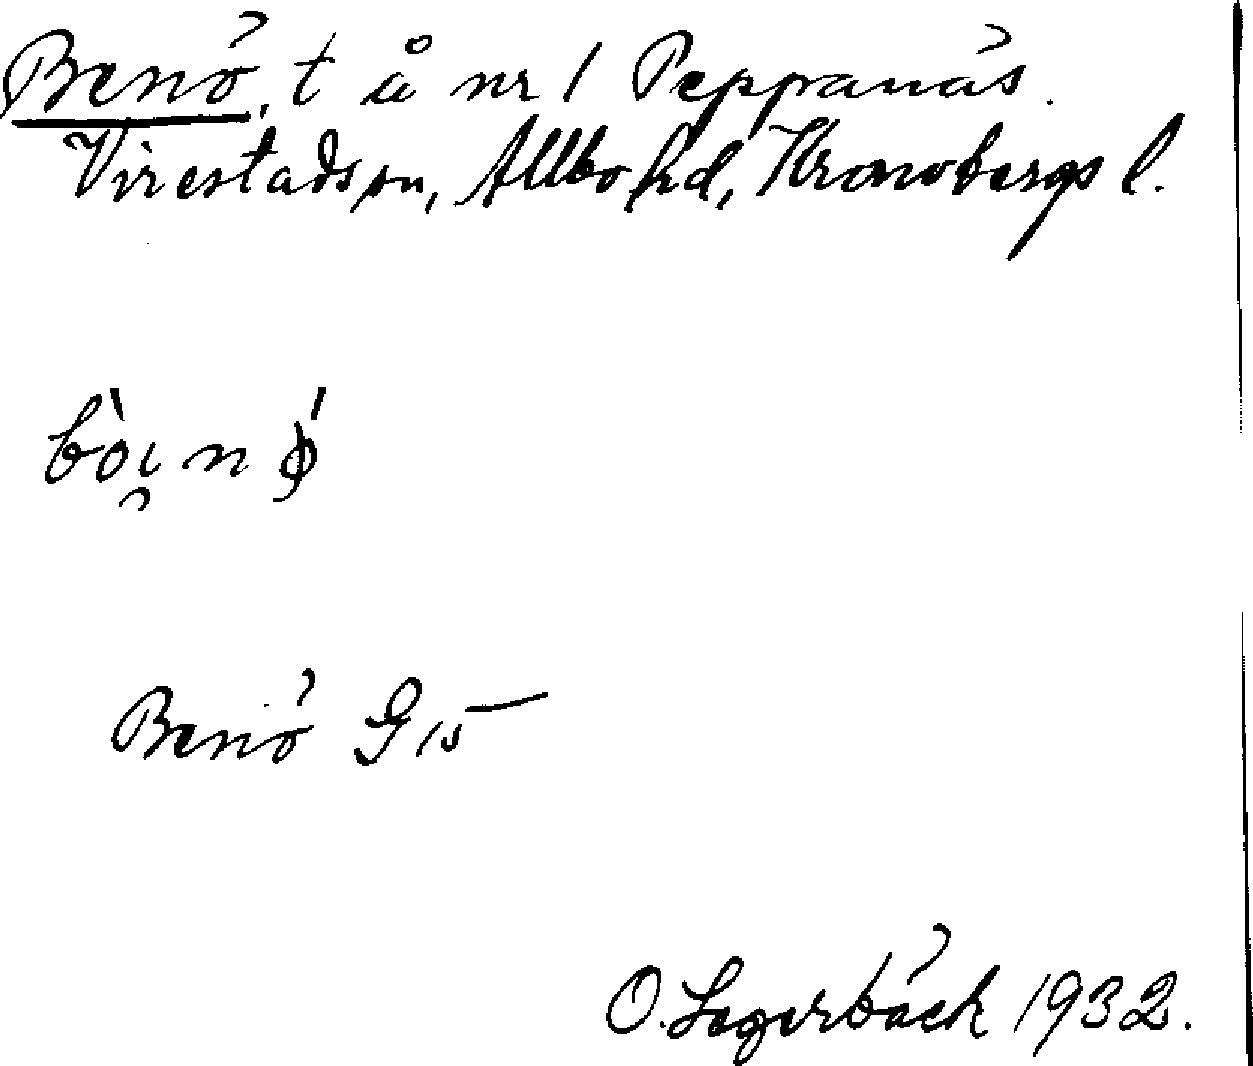 Benö, t å nr 1 Peppanäs.
Virestads sn, Allbo hd, Kronobergs l.
Benö G 15
O. Lagerbäck 1932.